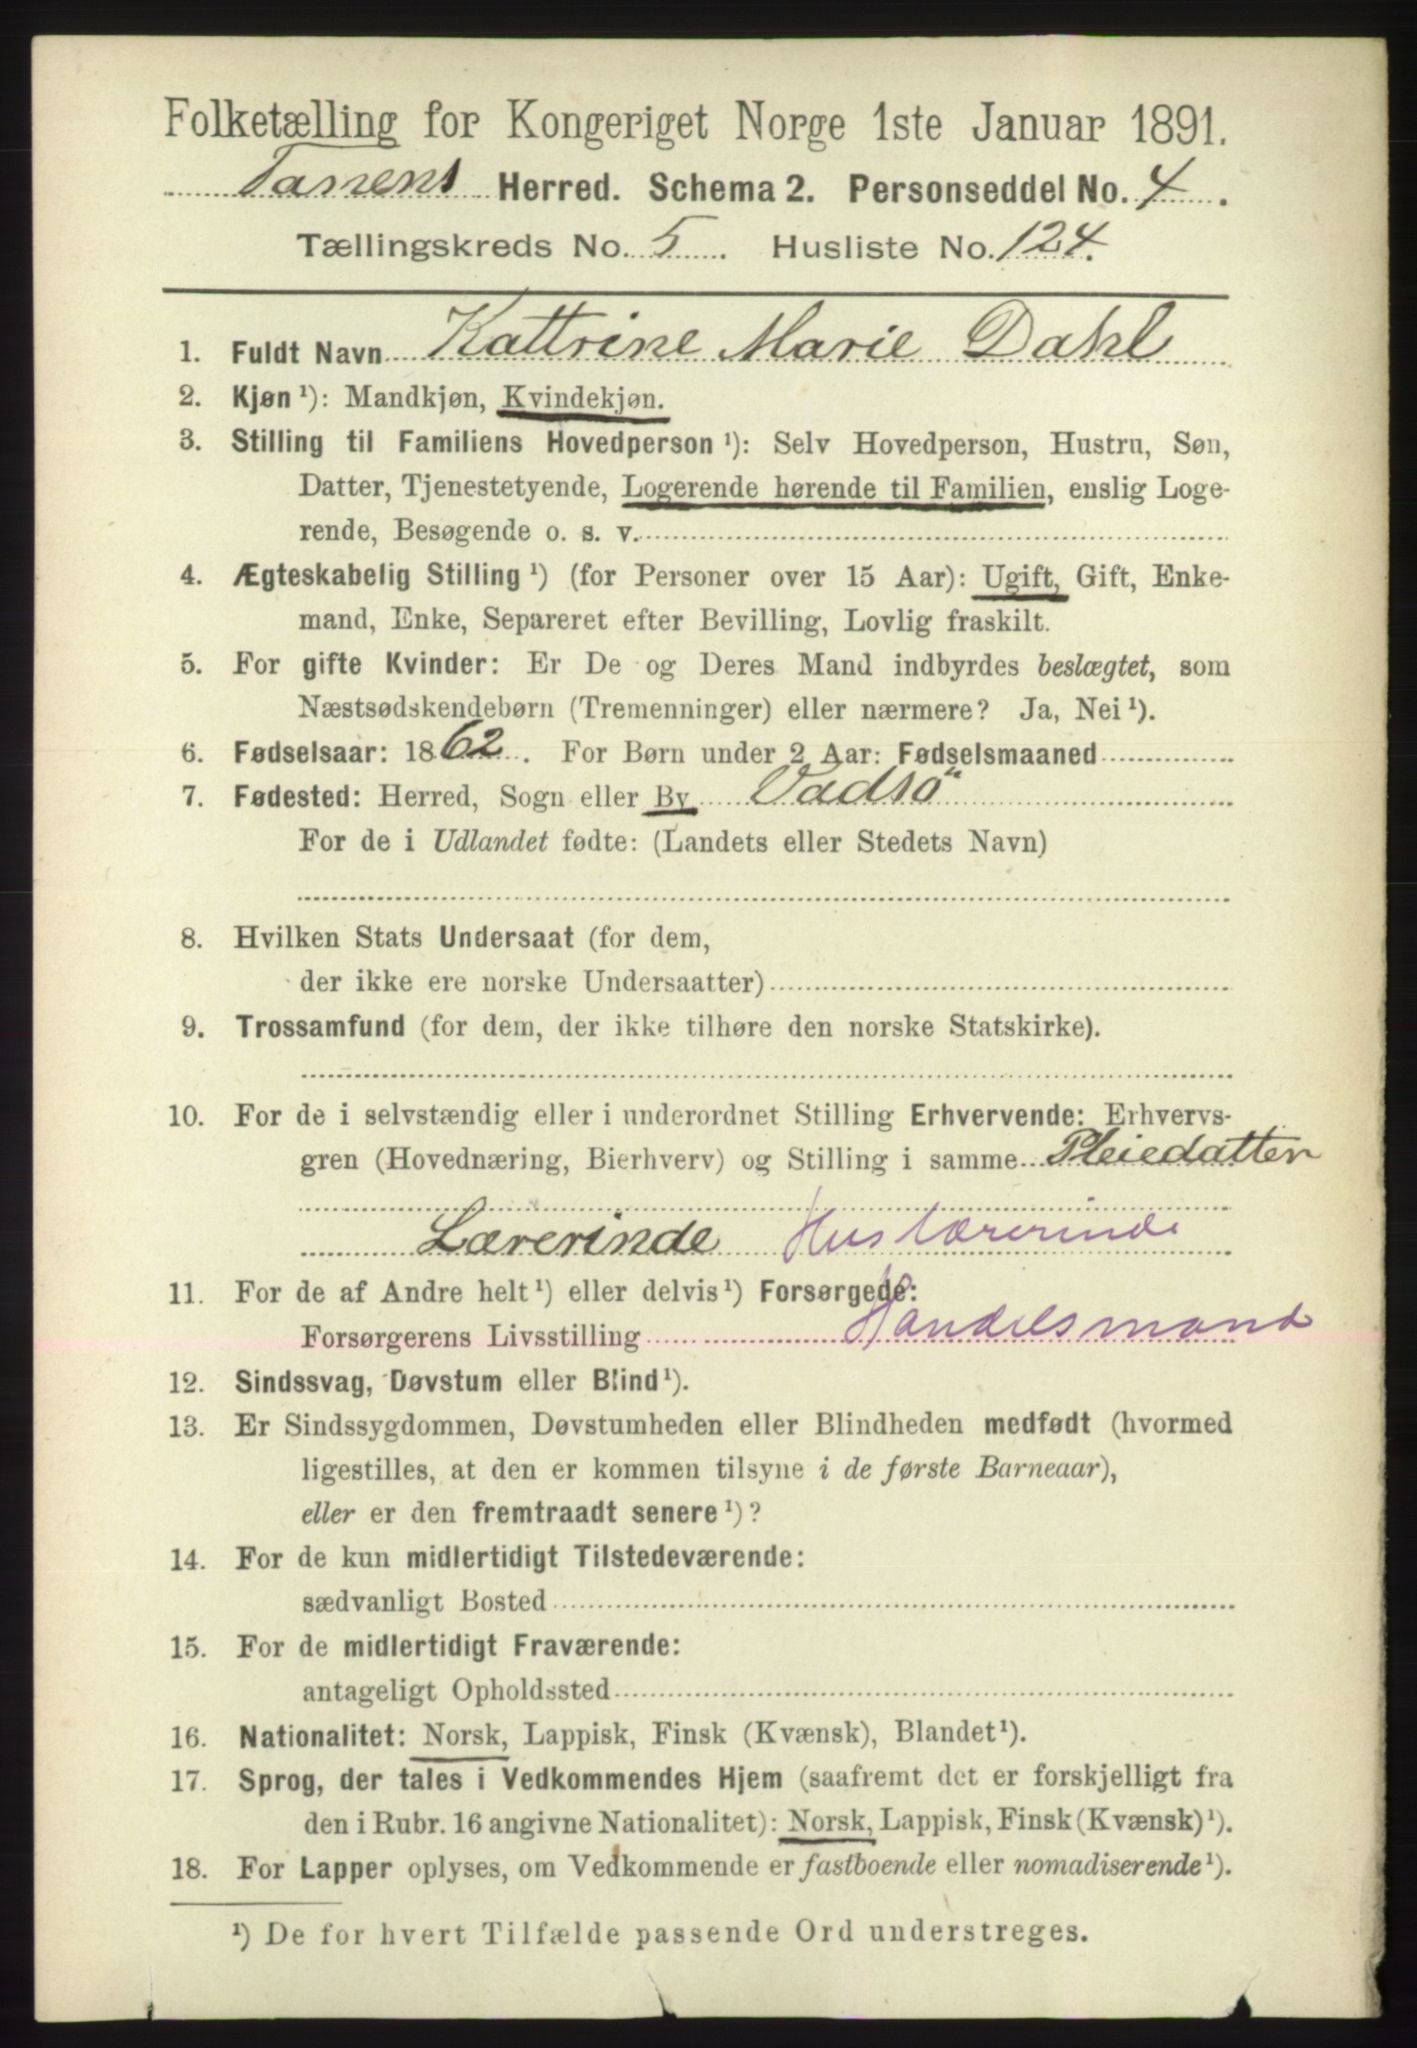 Folketælling for Kongeriget Norge 1ste Januar 1891.
Tanens Herred. Schema 2. Personseddel No. 4.
Tællingskreds No. 5. Husliste No. 124.
1. Fuldt Navn Kattrine Marie Dahl
2. Kjøn ¹): Mandkjøn, Kvindekjøn.
3. Stilling til Familiens Hovedperson ¹): Selv Hovedperson, Hustru, Søn,
Datter, Tjenestetyende, Logerende hørende til Familien, enslig Loge-
rende, Besøgende o. s. v.
4. Ægteskabelig Stilling ¹) (for Personer over 15 Aar): Ugift, Gift, Enke-
mand, Enke, Separeret efter Bevilling, Lovlig fraskilt.
5. For gifte Kvinder: Er De og Deres Mand indbyrdes beslægtet, som
Næstsødskendebørn (Tremenninger) eller nærmere? Ja, Nei ¹).
6. Fødselsaar: 1862. For Børn under 2 Aar: Fødselsmaaned
7. Fødested: Herred, Sogn eller By Vadsö
For de i Udlandet fødte: (Landets eller Stedets Navn)
8. Hvilken Stats Undersaat (for dem,
der ikke ere norske Undersaatter)
9. Trossamfund (for dem, der ikke tilhøre den norske Statskirke).
10. For de i selvstændig eller i underordnet Stilling Erhvervende: Erhvervs-
gren (Hovednæring, Bierhverv) og Stilling i samme Pleiedatter
Lærerinde Huslærerinde
11. For de af Andre helt ¹) eller delvis ¹) Forsørgede:
Forsørgerens Livsstilling Handelsmand
12. Sindssvag, Døvstum eller Blind ¹).
13. Er Sindssygdommen, Døvstumheden eller Blindheden medfødt (hvormed
ligestilles, at den er kommen tilsyne i de første Barneaar),
eller er den fremtraadt senere ¹)?
14. For de kun midlertidigt Tilstedeværende:
sædvanligt Bosted
15. For de midlertidigt Fraværende:
antageligt Opholdssted
16. Nationalitet: Norsk, Lappisk, Finsk (Kvænsk), Blandet ¹).
17. Sprog, der tales i Vedkommendes Hjem (saafremt det er forskjelligt fra
den i Rubr. 16 angivne Nationalitet): Norsk, Lappisk, Finsk (Kvænsk) ¹).
18. For Lapper oplyses, om Vedkommende er fastboende eller nomadiserende ¹).
¹) De for hvert Tilfælde passende Ord understreges.